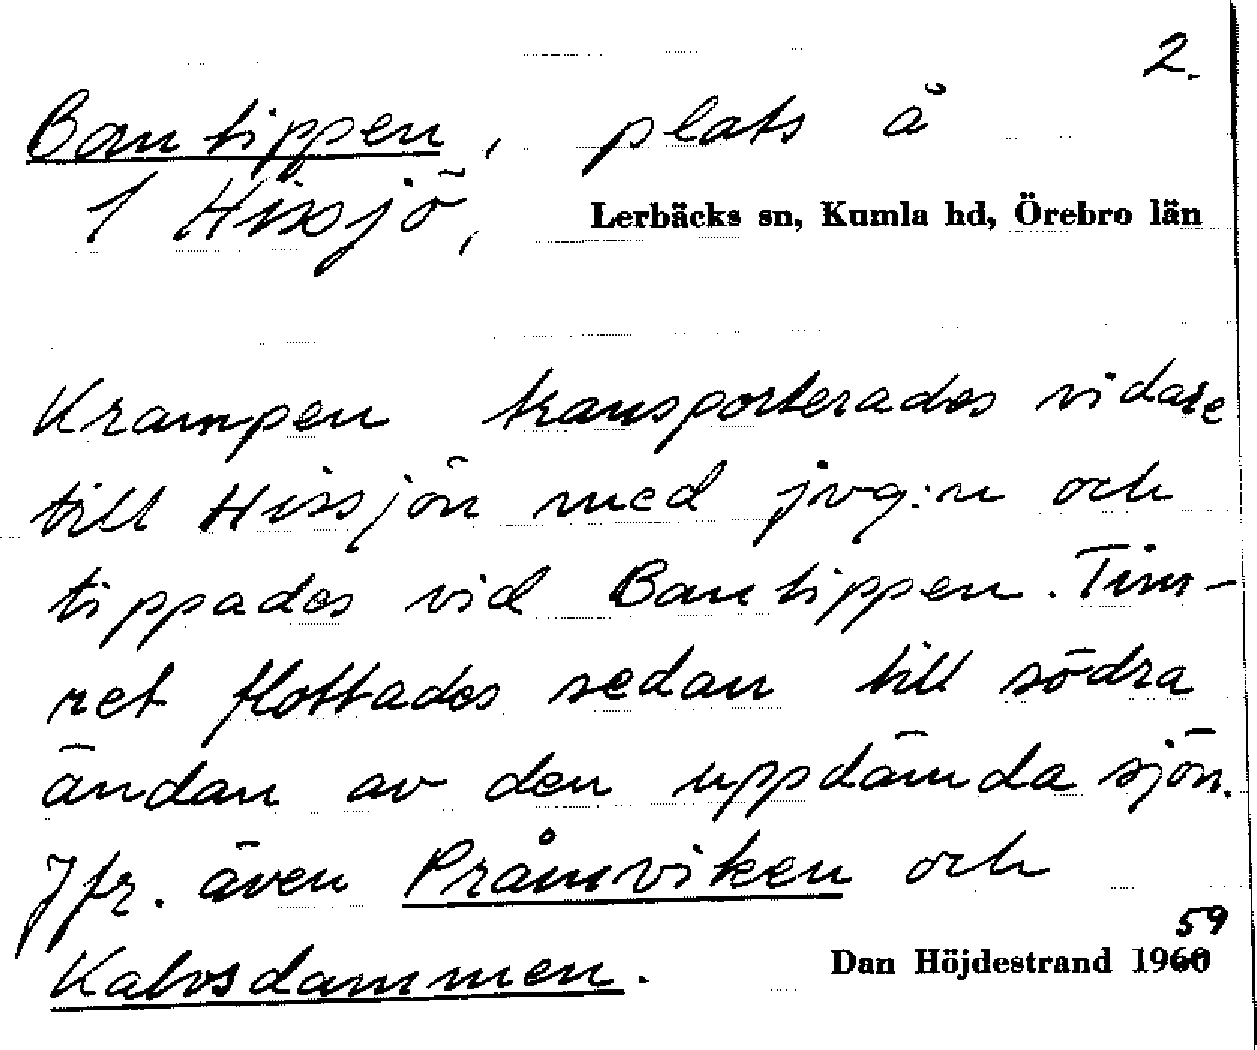 2.
Bantippen, plats å
1 Hissjö, Lerbäcks sn, Kumla hd, Örebro län
Krampen transporterades vidare
till Hissjön med jvg:n och
tippades vid Bantippen. Tim-
ret flottades sedan till södra
ändan av den uppdämda sjön.
Jfr. även Pråmviken och
59
Kalvsdammen. Dan Höjdestrand 1960